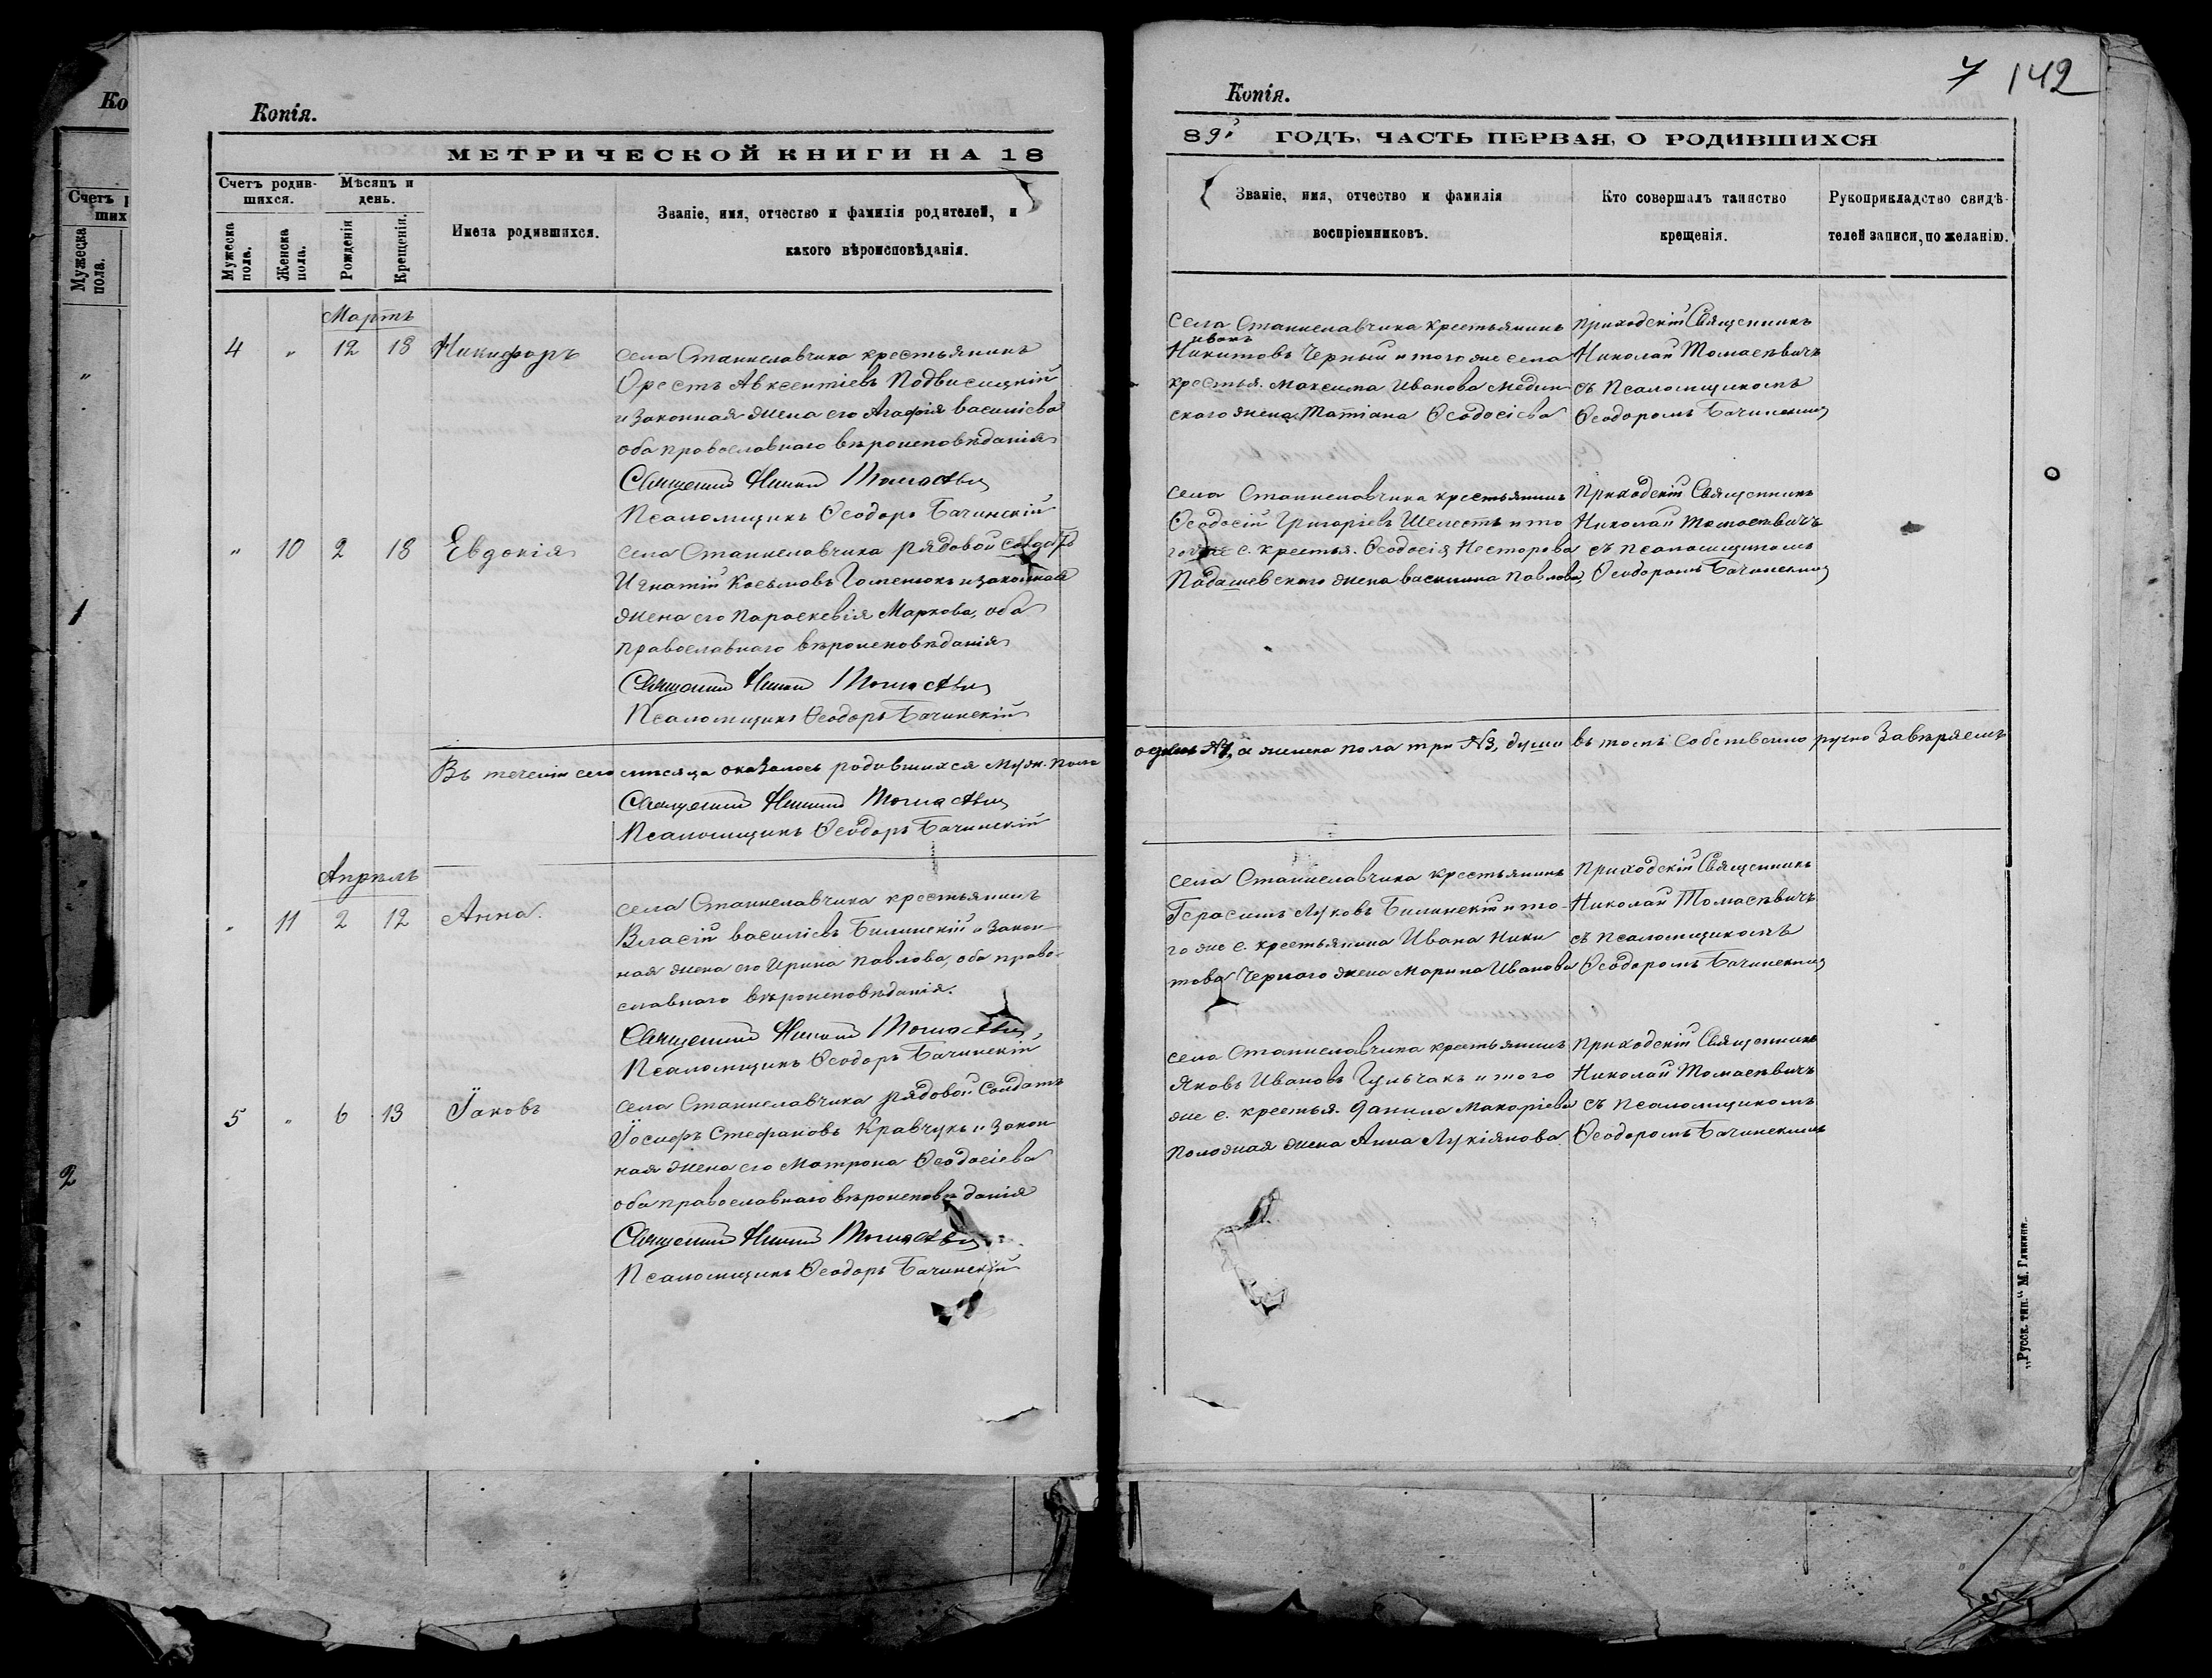 Копія.
МЕТРИЧЕСКОЙ КНИГИ НА 18
Счетъ родив-
шихся.
Мѣсяцъ и
день.
Мужеска
пола.
Женска
пола.
Рожденія
Крещенія.
Имена родившихся.
Званіе, имя, отчество и фамилія родителей, и
какого вѣроисповѣданія.
Мартъ
4 " 12 18 Никифоръ
села Станиславчика крестьянинъ
Орестъ Авксентіевъ Подвисицкій
и законная жена его Агафія Василіева
оба православнаго вѣроисповѣданія
Псаломщикъ Ѳеодоръ Бачинскій
" 10 2 18 Евдокія
села Станиславчика рядовой солдатъ
Игнатій Косьмовъ Гоменюкъ и законная
жена его Параскевія Маркова, оба
православнаго вѣроисповѣданія
Псаломщикъ Ѳеодоръ Бачинскій
Въ теченіи сего мѣсяца оказалось родившихся Муж. пола
Псаломщикъ Ѳеодоръ Бачинскій
Апрѣль
" 11 2 12 Анна.
села Станиславчика крестьянинъ
Власій Василіевъ Билинскій и закон-
ная жена его Ирина Павлова, оба право-
славнаго вѣроисповѣданія.
Псаломщикъ Ѳеодоръ Бачинскій
5 " 6 13 Іаковъ
села Станиславчика рядовой Солдатъ
Іосифъ Стефановъ Кравчукъ и закон
ная жена его Матрона Ѳеодосіева
оба православнаго вѣроисповѣданія
Псаломщикъ Ѳеодоръ Бачинскій
Ко
Счетъ
ших
Мужеска
пола.
"
1
2
7 142
Копія.
89 ГОДЪ, ЧАСТЬ ПЕРВАЯ, О РОДИВШИХСЯ
Званіе, имя, отчество и фамилія
воспріемниковъ.
Кто совершалъ таинство
крещенія.
Рукоприкладство свидѣ-
телей записи, по желанію.
села Станиславчика крестьянинъ
иванъ
Никитовъ Черный и того же села
крестья. Максима Иванова Медин
ского жена Татіана Ѳеодосіева
Приходскій Священникъ
Николай Томасѣвичъ
съ Псаломщикомъ
Ѳеодоромъ Бачинскимъ
села Станиславчика крестьянинъ
Ѳеодосій Григоріевъ Шелестъ и то
го же с. крестья. Ѳеодосія Несторова
жена Василина Павлова
Приходскій Священникъ
Николай Томасѣвичъ
съ псаломщикомъ
Ѳеодоромъ Бачинскимъ
одинъ №1, а женска пола три №3, души въ томъ Собственно ручно Завѣряемъ
села Станиславчика крестьянинъ
Герасимъ Луковъ Билинскій и то-
го же с. крестьянина Ивана Ники
това Чернаго жена Марина Иванова
Приходскій Священникъ
Николай Томасѣвичъ
съ псаломщикомъ
Ѳеодоромъ Бачинскимъ
села Станиславчика крестьянинъ
Яковъ Ивановъ Гульчакъ и того
же с. крестья. Данила Макаріева
жена Анна Лукіянова
Приходскій Священникъ
Николай Томасѣвичъ
съ Псаломщикомъ
Ѳеодоромъ Бачинскимъ
„Русск. тип." М. Гликина.